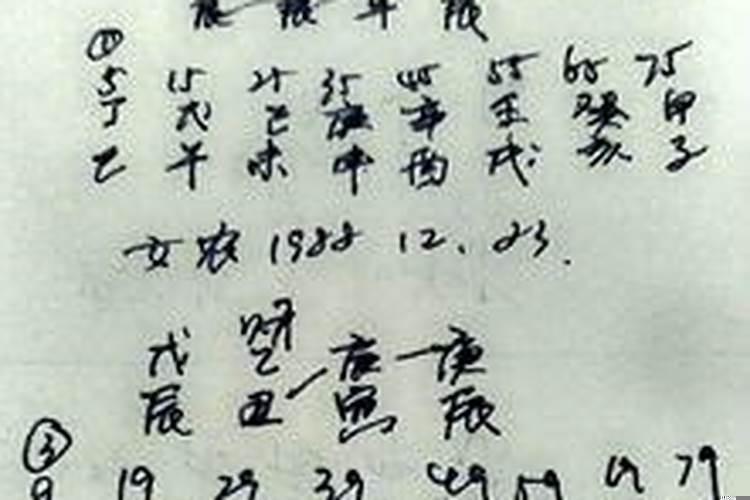 ①
5 15 25 35 45 55 65 75
丁 戊 己 庚 辛 壬 癸 甲
巳 午 未 申 酉 戌 亥 子
女 农 1988 12. 23.
戊 乙 庚 庚
辰 丑 寅 辰
9 19 29 39 49 59 69 79